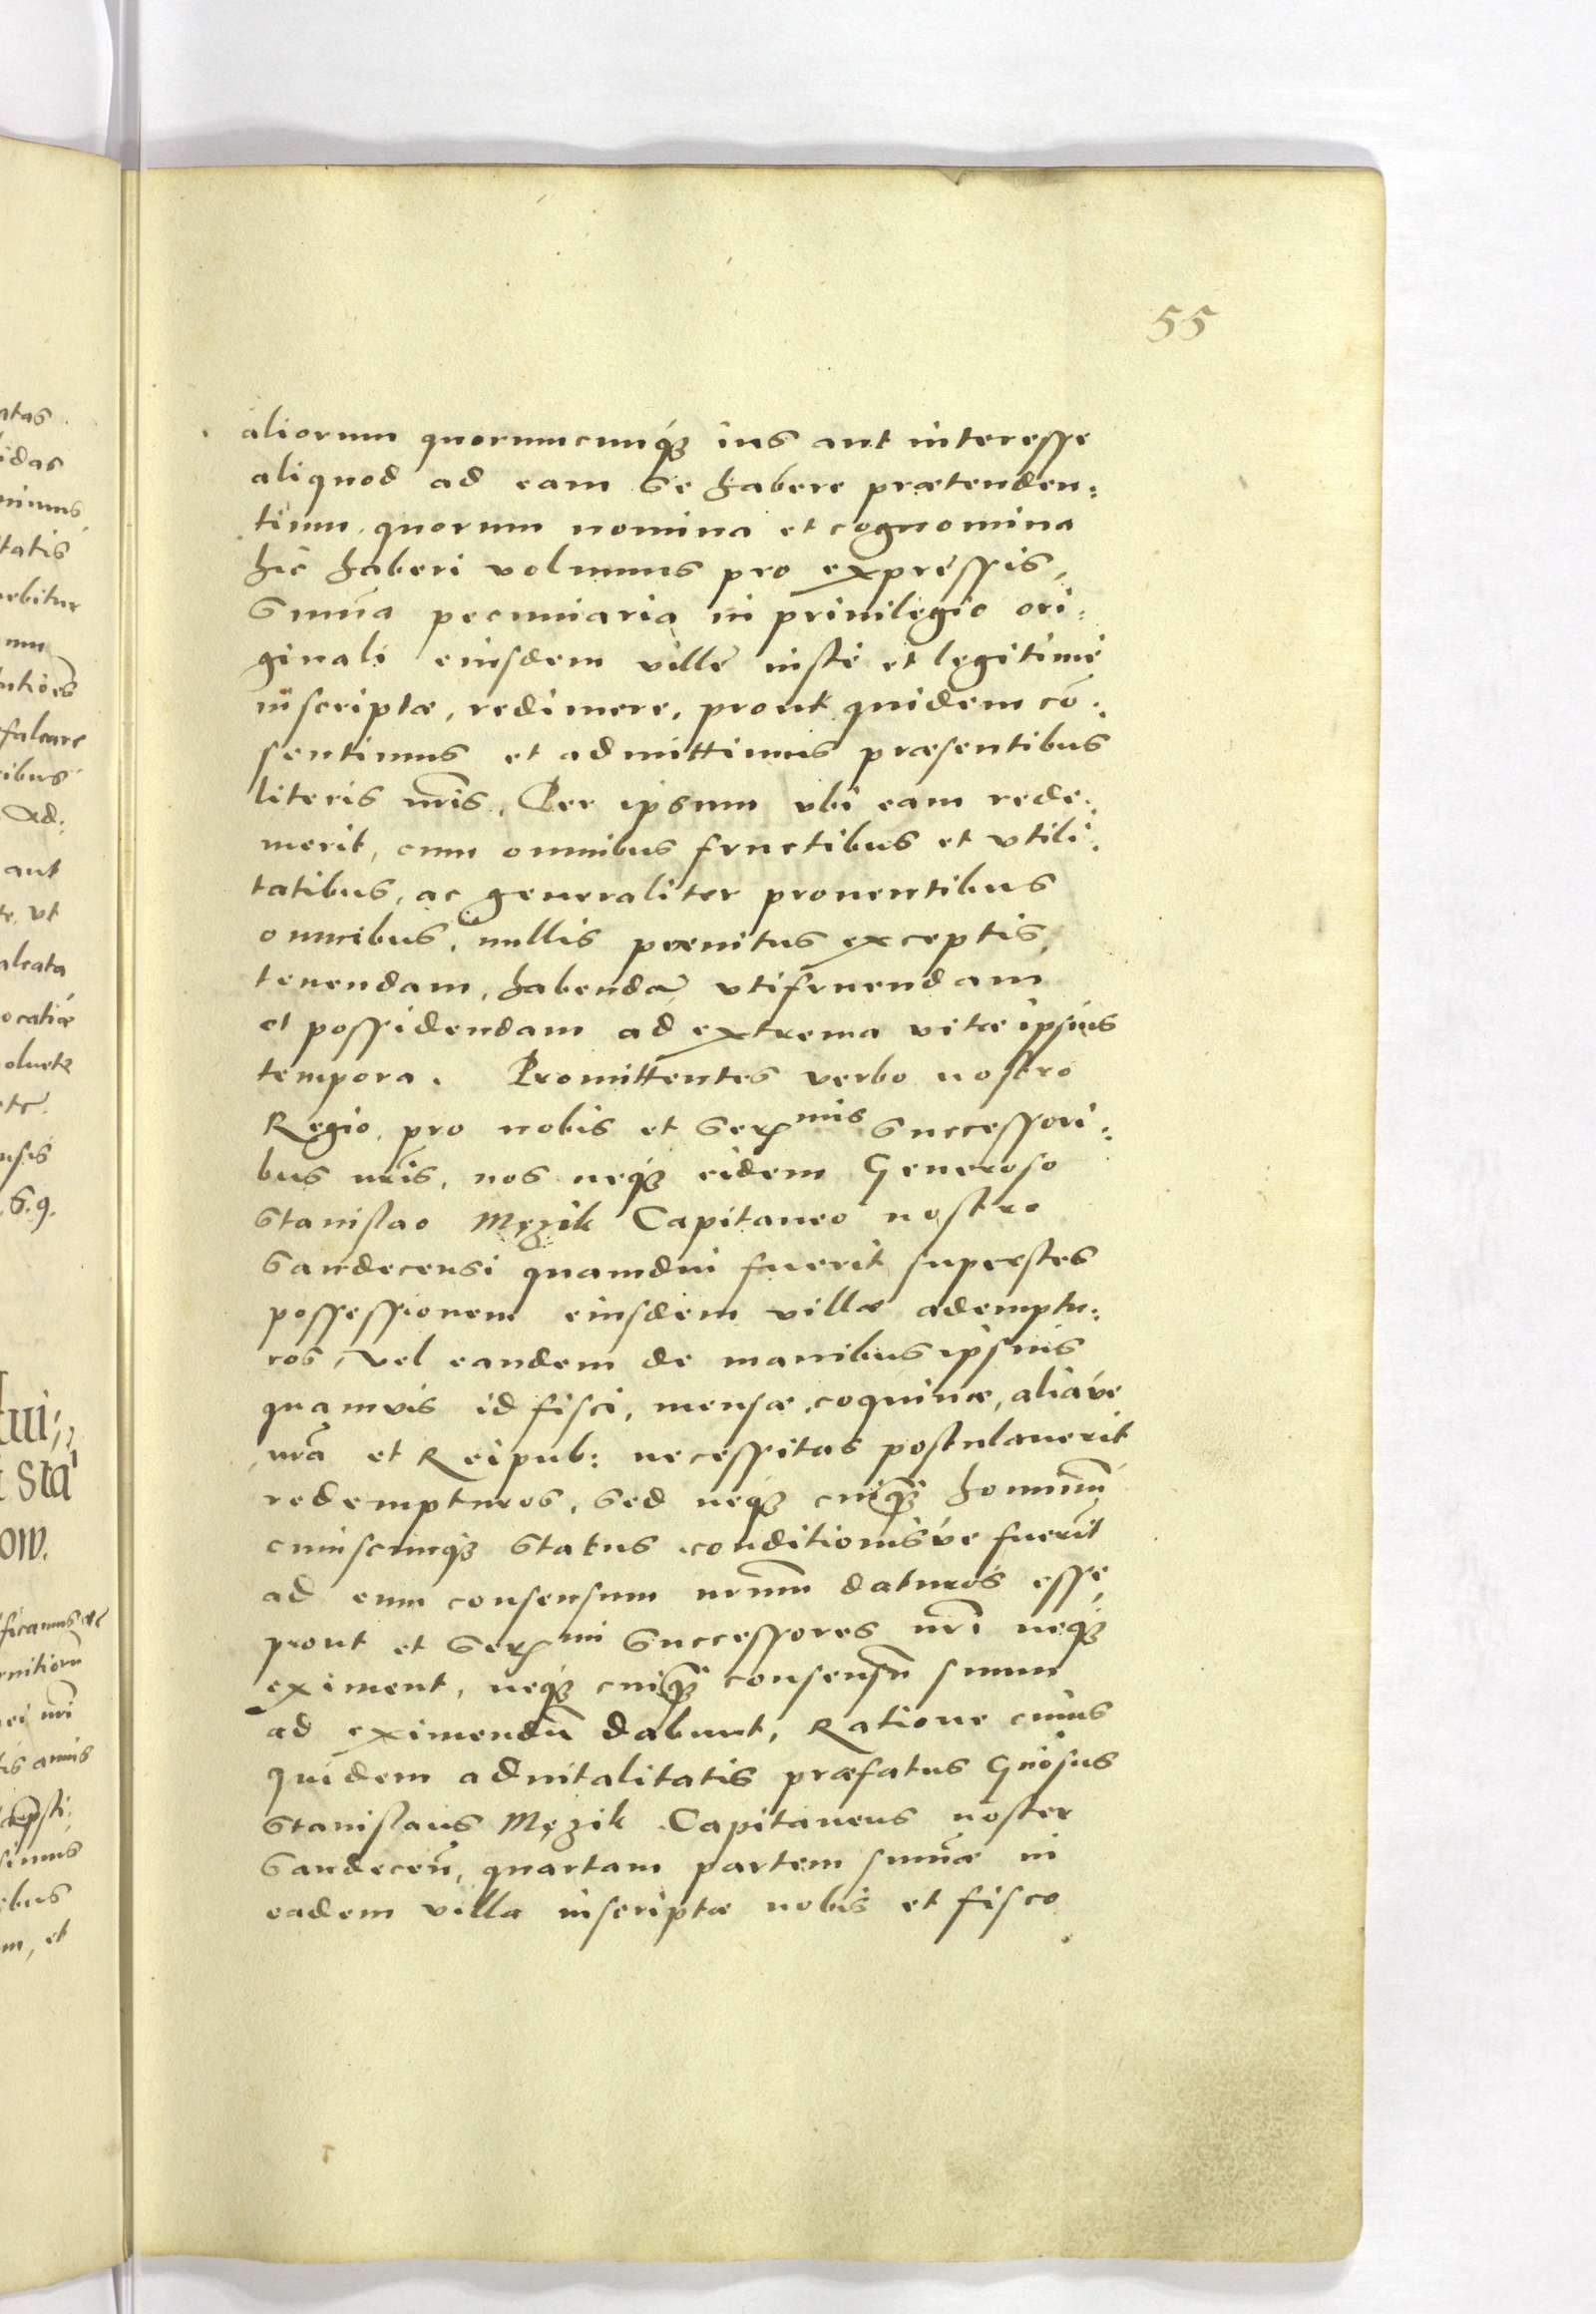 55
aliorum quorumcunq́ꝫ ius aut interesse
aliquod ad eam se habere prætenden:
tium, quorum nomina et cognomina
hic haberi volumus pro expressis,
Sum̃a pecuniaria in priuilegio ori:
ginali eiusdem villæ iuste et legitime
inscripta, redimere, prout quidem cõ:
sentimus et admittimus præsentibus
literis nr̃is, Per ipsum vbi eam rede:
merit, cum omnibus fructibus et vtili:
tatibus, ac generaliter prouentibus
omnibus, nullis pœnitus exceptis,
tenendam, habendã, vtifruendam
et possidendam ad extrema vitæ ipsius
tempora. Promittentes verbo nostro
Regio, pro nobis et Ser^mis Successori:
bus nr̃is, nos neqꝫ eidem Generoso
Stanislao Mężik Capitaneo nostro
Sandecensi quamdiu fuerit superstes
possessionem eiusdem villæ ademptu:
ros, vel eandem de manibus ipsius
quamuis id fisci, mensæ, coquinæ, aliáve
nr̃a et Reipub: necessitas postulauerit
redempturos, sed neqꝫ cuiqꝫ hominũ
cuiuscunqꝫ status conditionisve fuerĩt
ad eum consensum nr̃um daturos esse,
prout et Ser^mi Successores nr̃i neqꝫ
eximent, neqꝫ cuiqꝫ consensũ suum
ad eximendũ dabunt, Ratione cuius
quidem aduitalitatis præfatus Gñosus
Stanislaus Mężik Capitaneus noster
Sandeceñ, quartam partem sum̃æ in
eadem villa inscriptæ nobis et fisco